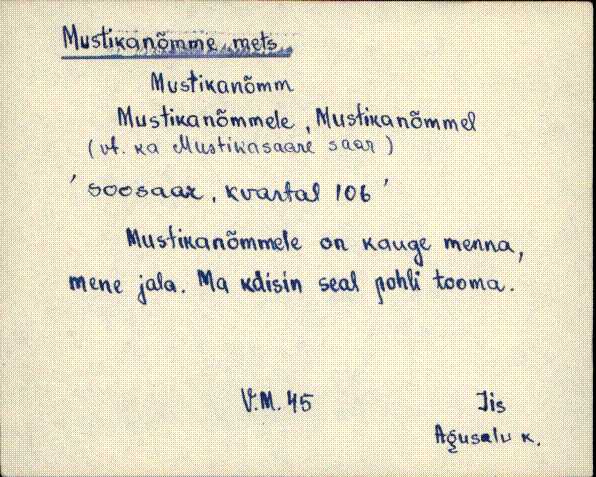 Mustikanõmme mets
Mustikanõmm
Mustikanõmmele, Mustikanõmmel
(vt. ka Mustikasaare saar)
'soosaar, kvartal 106'
Mustikanõmmele on kauge menna,
mene jala. Ma käisin seal pohli tooma.
V.M. 45
Iis
Agusalu k.